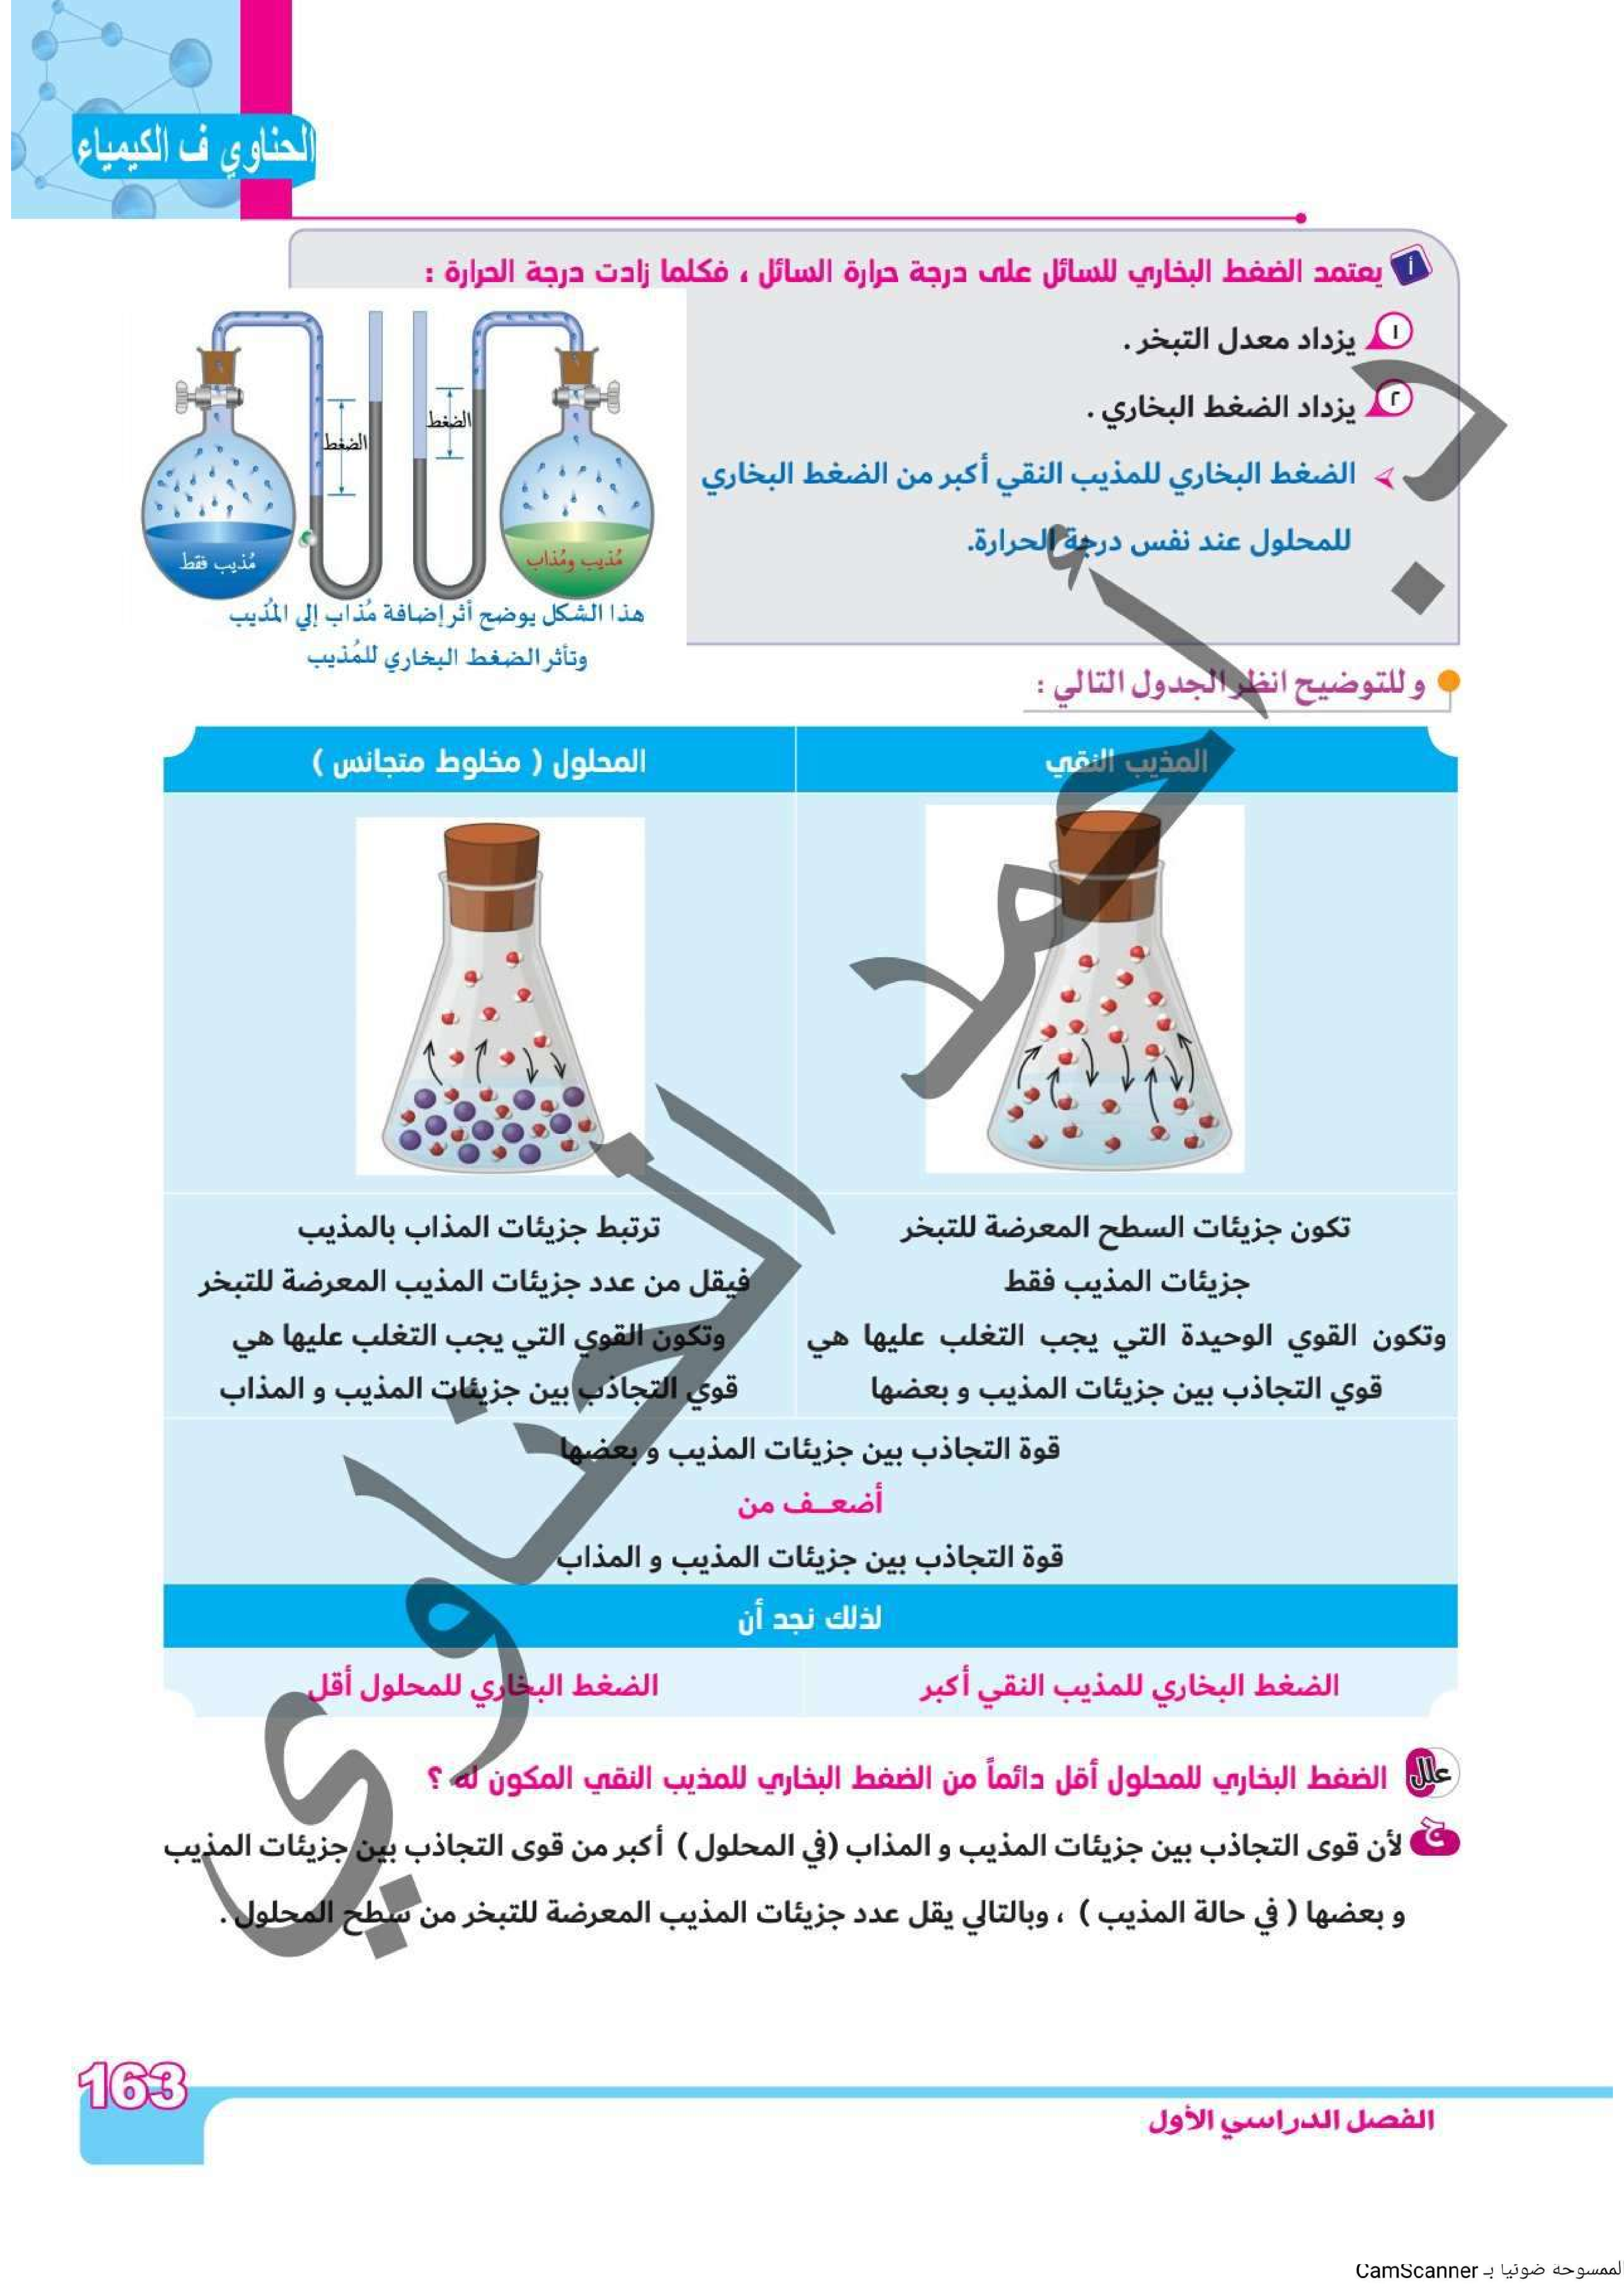 الحناوي ف الكيمياء
أ يعتمد الضغط البخاري للسائل على درجة حرارة السائل ، فكلما زادت درجة الحرارة :
١ يزداد معدل التبخر .
٢ يزداد الضغط البخاري .
الضغط البخاري للمذيب النقي أكبر من الضغط البخاري
للمحلول عند نفس درجة الحرارة.
الضغط
الضغط
مُذيب فقط
مُذيب ومُذاب
هذا الشكل يوضح أثر إضافة مُذاب إلي المُذيب
وتأثر الضغط البخاري للمُذيب
و للتوضيح انظر الجدول التالي :
المذيب النقي
المحلول ( مخلوط متجانس )
تكون جزيئات السطح المعرضة للتبخر
جزيئات المذيب فقط
وتكون القوي الوحيدة التي يجب التغلب عليها هي
قوي التجاذب بين جزيئات المذيب و بعضها
ترتبط جزيئات المذاب بالمذيب
فيقل من عدد جزيئات المذيب المعرضة للتبخر
وتكون القوي التي يجب التغلب عليها هي
قوي التجاذب بين جزيئات المذيب و المذاب
قوة التجاذب بين جزيئات المذيب و بعضها
أضعــف من
قوة التجاذب بين جزيئات المذيب و المذاب
لذلك نجد أن
الضغط البخاري للمذيب النقي أكبر
الضغط البخاري للمحلول أقل
علل الضغط البخاري للمحلول أقل دائماً من الضغط البخاري للمذيب النقي المكون له ؟
ج لأن قوى التجاذب بين جزيئات المذيب و المذاب (في المحلول ) أكبر من قوى التجاذب بين جزيئات المذيب
و بعضها ( في حالة المذيب ) ، وبالتالي يقل عدد جزيئات المذيب المعرضة للتبخر من سطح المحلول .
د. أحمد الحناوي
163
الفصل الدراسي الأول
لممسوحة ضوئيا بـ CamScanner